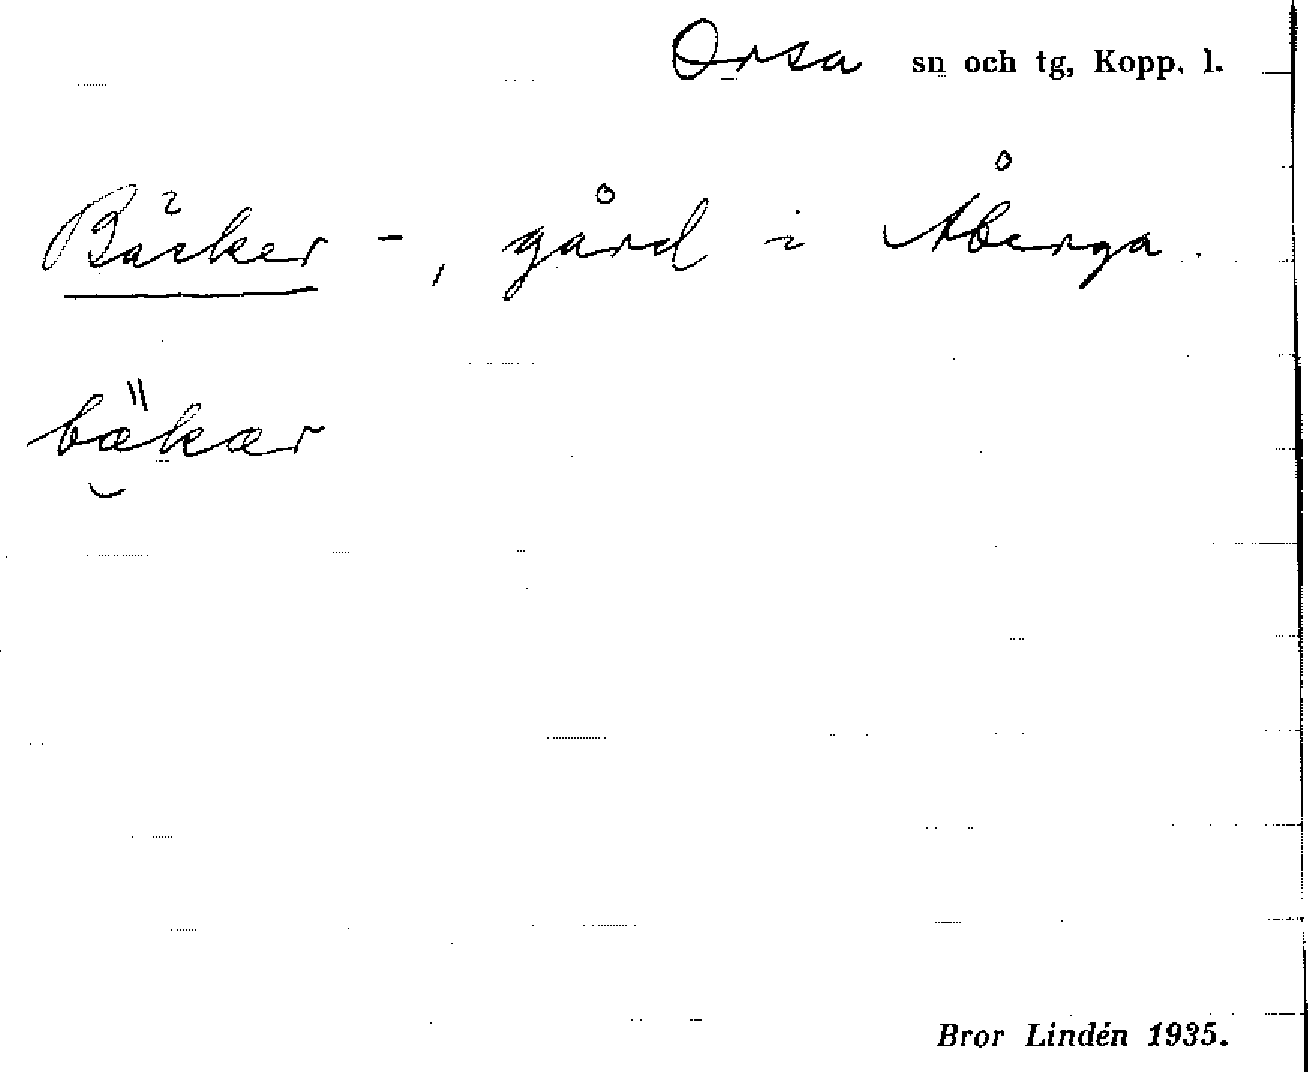 Orsa sn och tg, Kopp. l.
Bäcker -, gård i Åberga.
bäkær
Bror Lindén 1935.